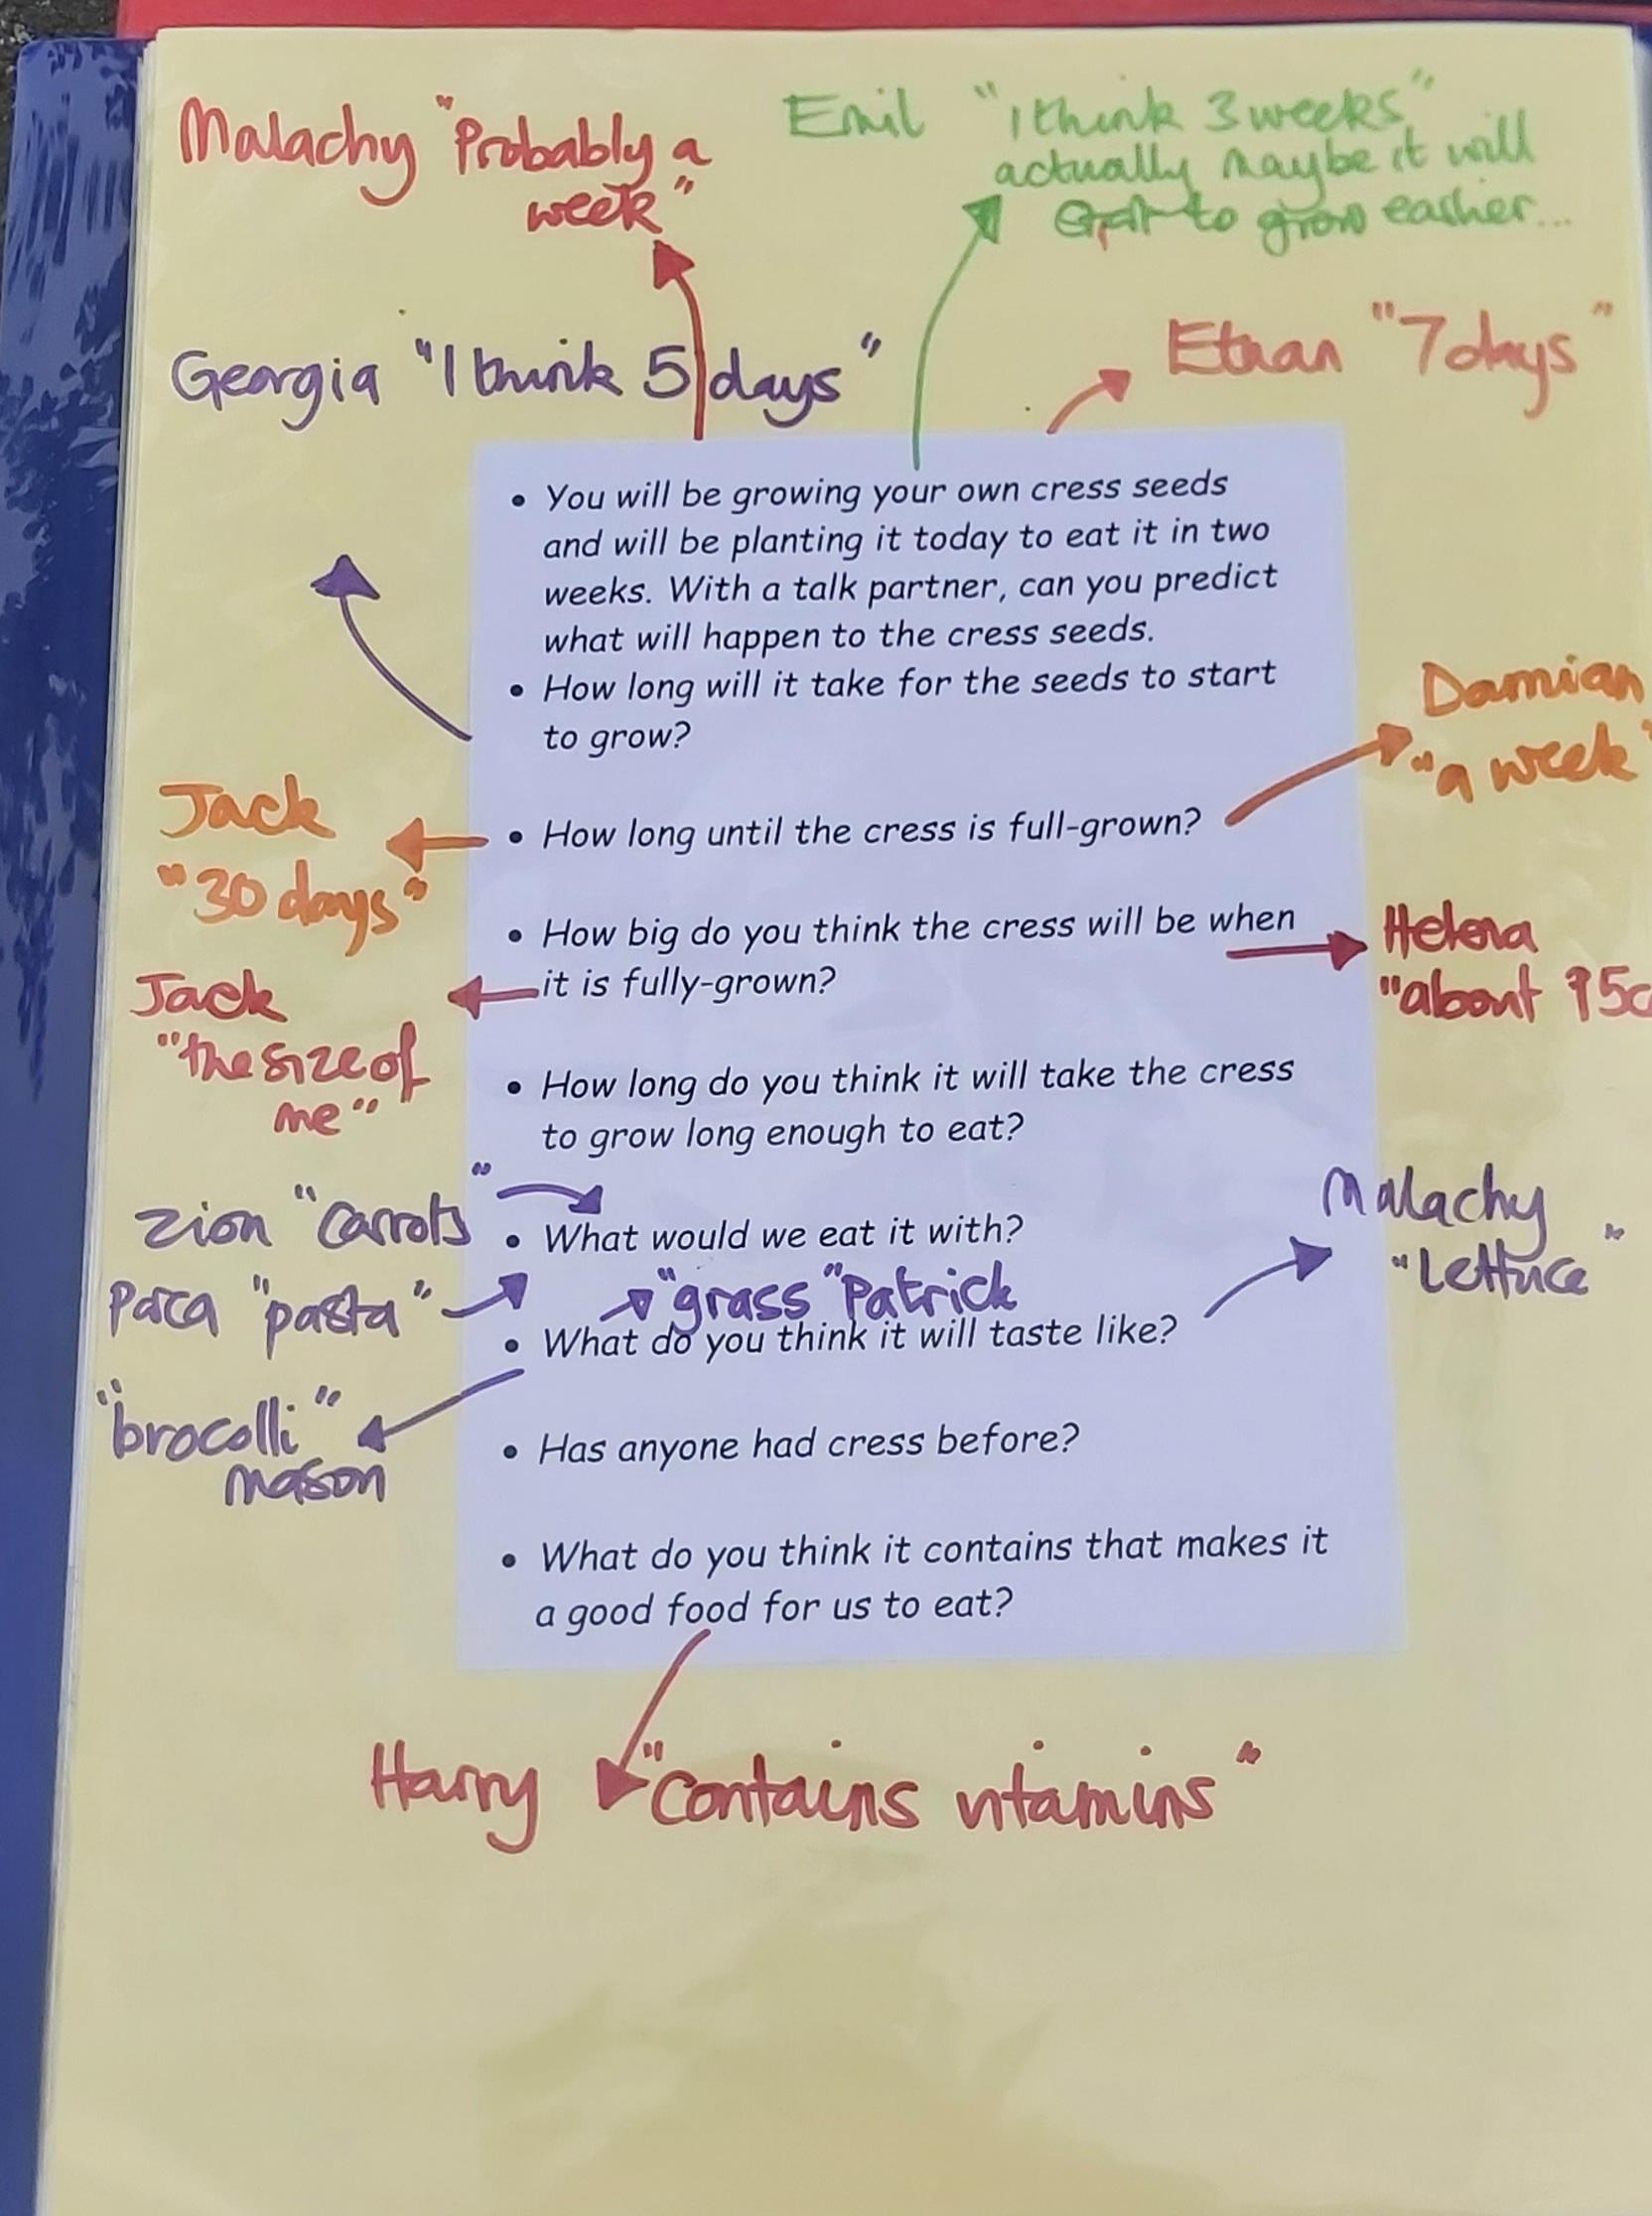 Malachy "Probably a
week"
Emil "I think 3 weeks"
actually maybe it will
to grow eashier...
Georgia "I think 5 days"
Ethan "7 days"
• You will be growing your own cress seeds
and will be planting it today to eat it in two
weeks. With a talk partner, can you predict
what will happen to the cress seeds.
• How long will it take for the seeds to start
to grow?
Damian
"a week"
Jack
"30 days"
• How long until the cress is full-grown?
• How big do you think the cress will be when
it is fully-grown?
Helena
"about 15c
Jack
"the size of
me"
• How long do you think it will take the cress
to grow long enough to eat?
Zion "carrots"
• What would we eat it with?
Malachy
"Lettuce"
Paca "pasta"
"grass" Patrick
• What do you think it will taste like?
"brocolli"
mason
• Has anyone had cress before?
• What do you think it contains that makes it
a good food for us to eat?
Harry "Contains vitamins"